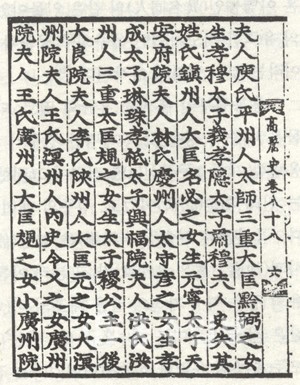 高麗史卷八十八 六
夫人庾氏平州人太師三重大匡黔弼之女
生孝穆太子義孝隱太子肅穆夫人史失其
姓氏鎭州人大匡名必之女生元寧太子天
安府院夫人林氏慶州人太守彦之女生孝
成太子琳珠孝祗太子興福院夫人洪氏洪
州人三重大匡規之女生太子稷公主一後
大良院夫人李氏陜州人大匡元之女大溟
州院夫人王氏溟州人內史令乂之女廣州
院夫人王氏廣州人大匡規之女小廣州院